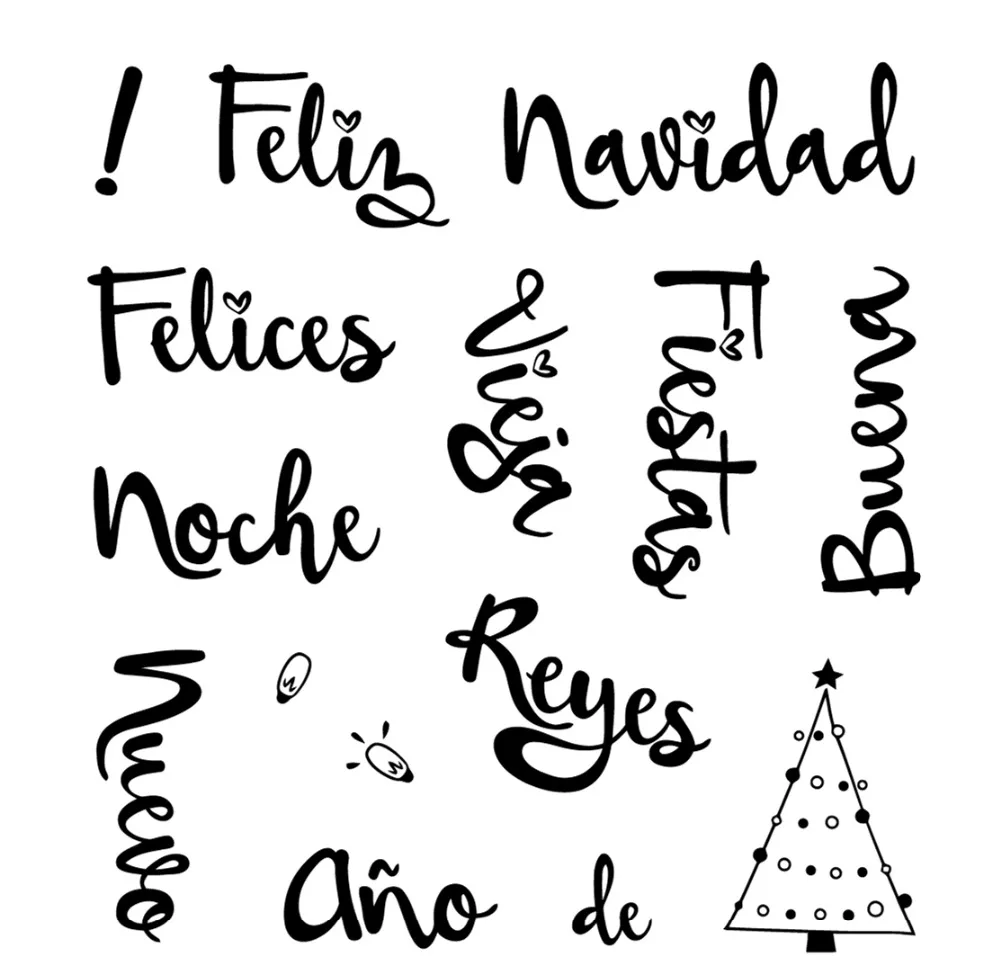 ! Feliz Navidad
Felices
Vieja
Fiestas
Buena
Noche
Reyes
Nuevo
Año de